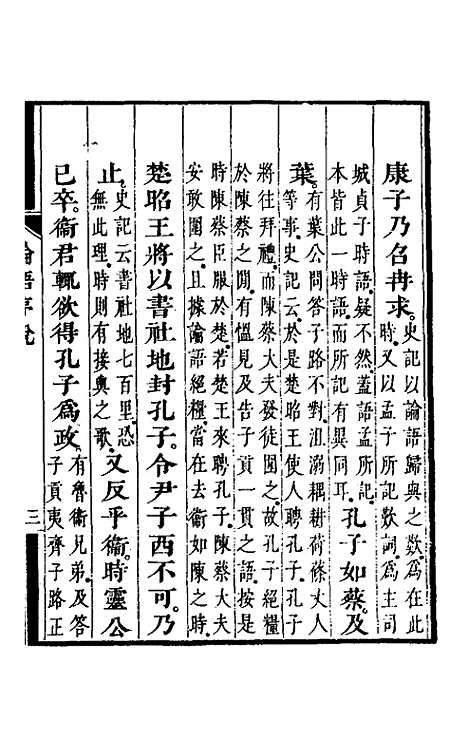 康子乃召冉求。史記以論語歸與之歎、為在此
時、又以孟子所記歎詞、為主司
城貞子時語、疑不然、蓋語孟所記
本皆此一時語、而所記有異同耳、孔子如蔡及
葉。有葉公問答子路不對沮溺耦耕荷蓧丈人
等事、史記云於是楚昭王使人聘孔子、孔子
將往拜禮、而陳蔡大夫發徒圍之、故孔子絕糧
於陳蔡之間、有慍見及告子貢一貫之語、按是
時陳蔡臣服於楚、若楚王來聘孔子、陳蔡大夫
安敢圍之、且據論語絕糧、當在去衛如陳之時、
楚昭王將以書社地封孔子。令尹子西不可。乃
止。史記云書社地七百里、恐
無此理、時則有接輿之歌、又反乎衛。時靈公
已卒。衛君輒欲得孔子為政。有魯衛兄弟、及答
子貢夷齊子路正
論語序說
三